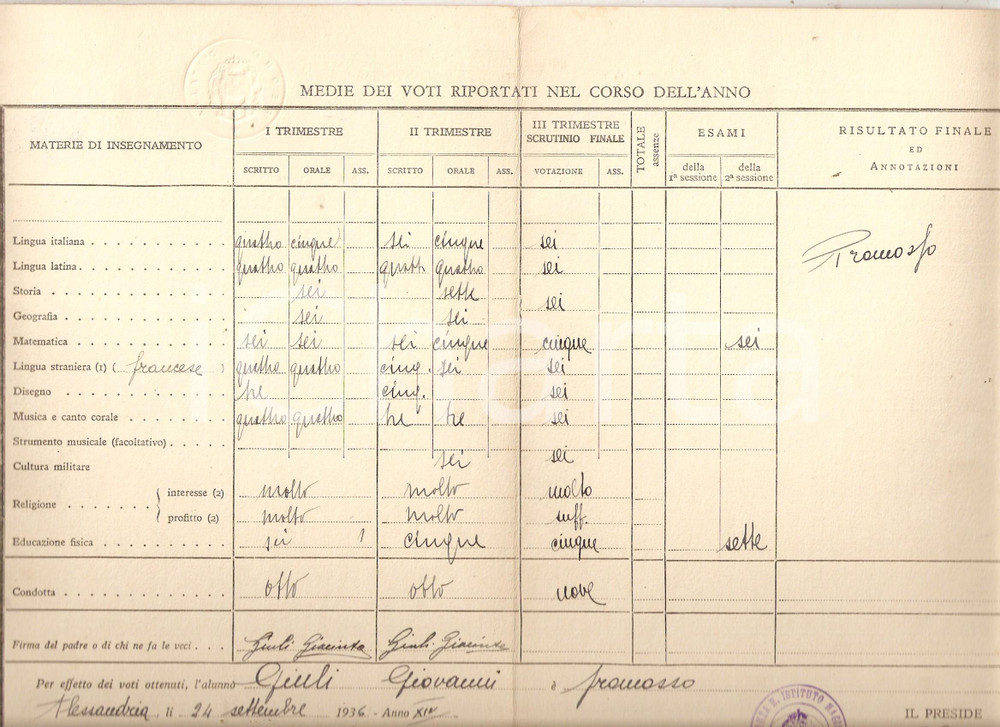 MEDIE DEI VOTI RIPORTATI NEL CORSO DELL'ANNO
MATERIE DI INSEGNAMENTO I TRIMESTRE II TRIMESTRE III TRIMESTRE SCRUTINIO FINALE TOTALE assenze ESAMI RISULTATO FINALE ED ANNOTAZIONI
SCRITTO ORALE ASS. SCRITTO ORALE ASS. VOTAZIONE ASS. della 1ª sessione della 2ª sessione
Lingua italiana quattro cinque sei cinque sei Promosso
Lingua latina quattro quattro quatt. quattro sei
Storia sei sette sei
Geografia sei sei
Matematica sei sei sei cinque cinque sei
Lingua straniera (1) (francese) quattro quattro cinq. sei sei
Disegno tre cinq. sei
Musica e canto corale quattro quattro tre tre sei
Strumento musicale (facoltativo)
Cultura militare sei sei
Religione interesse (2) molto molto molto
profitto (2) molto molto suff.
Educazione fisica sei 1 cinque cinque sette
Condotta otto otto nove
Firma del padre o di chi ne fa le veci Giuli Giacinto Giuli Giacinto
Per effetto dei voti ottenuti, l'alunno Giuli Giovanni è promosso
Alessandria li 24 settembre 1936 - Anno XIV
R. ISTITUTO
IL PRESIDE